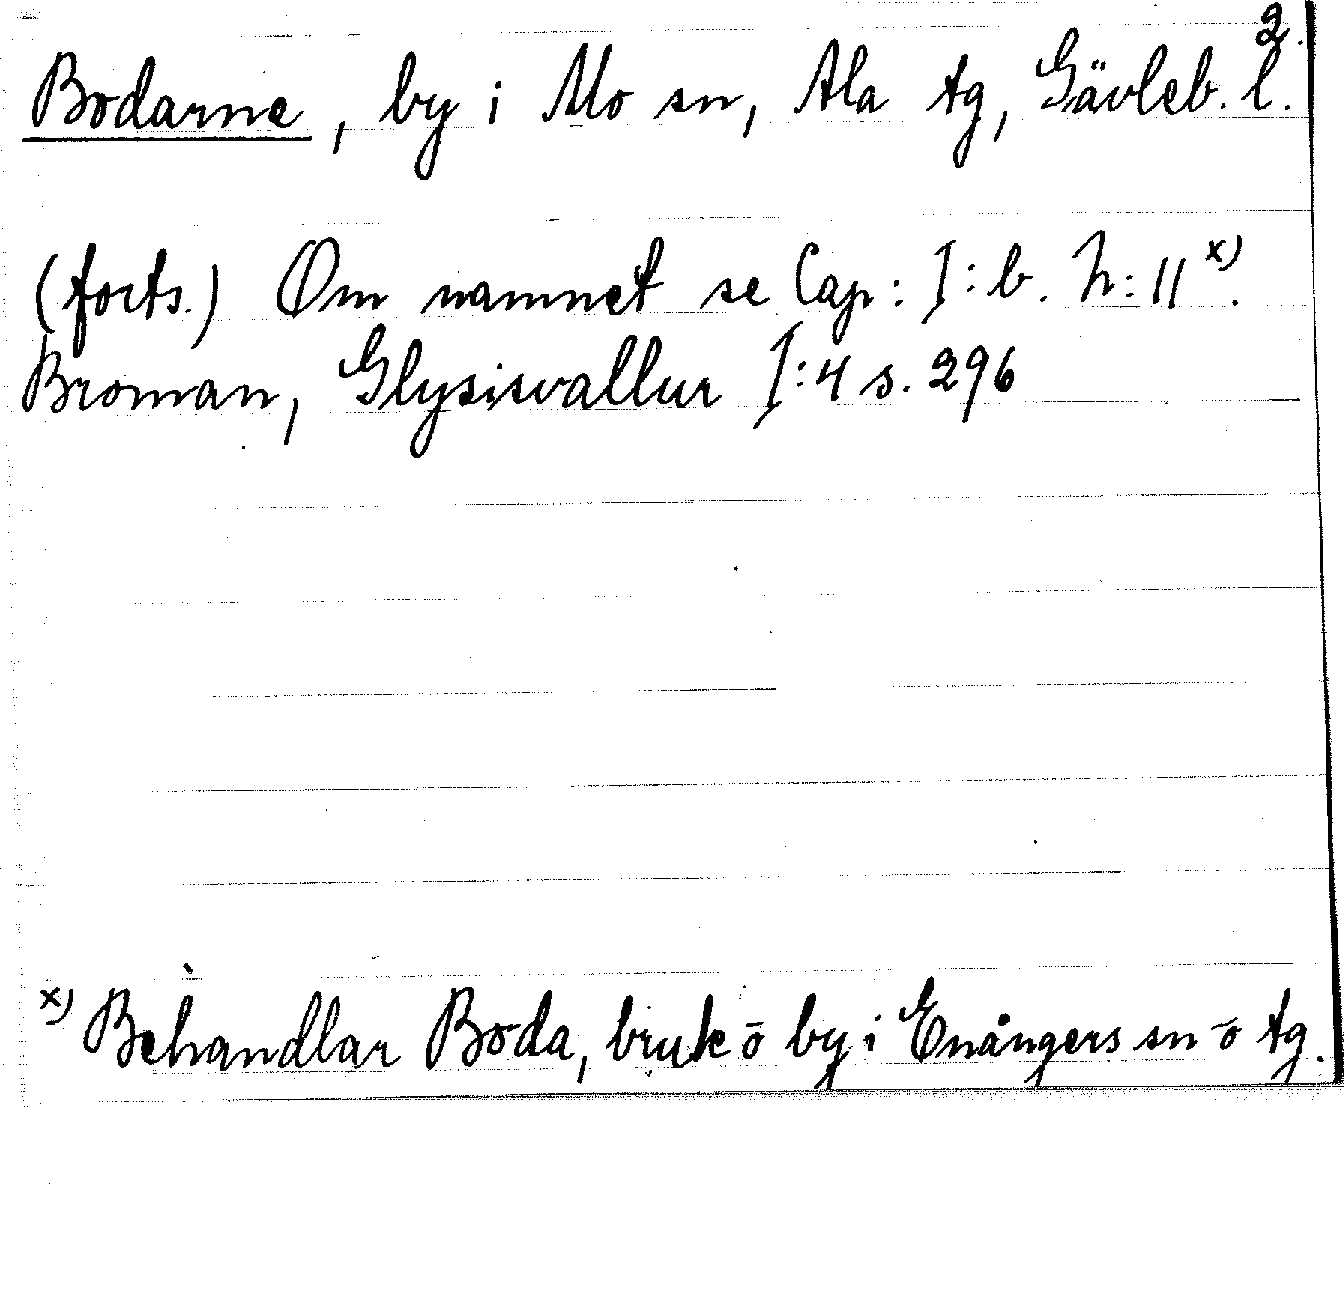 2.
Bodarne, by i Mo sn, Ala tg, Gävleb. l.
(forts.) Om namnet se Cap: I:b. N:11 x).
Broman, Glysisvallur I:4 s. 296
x) Behandlar Boda, bruk o by i Enångers sn o tg.